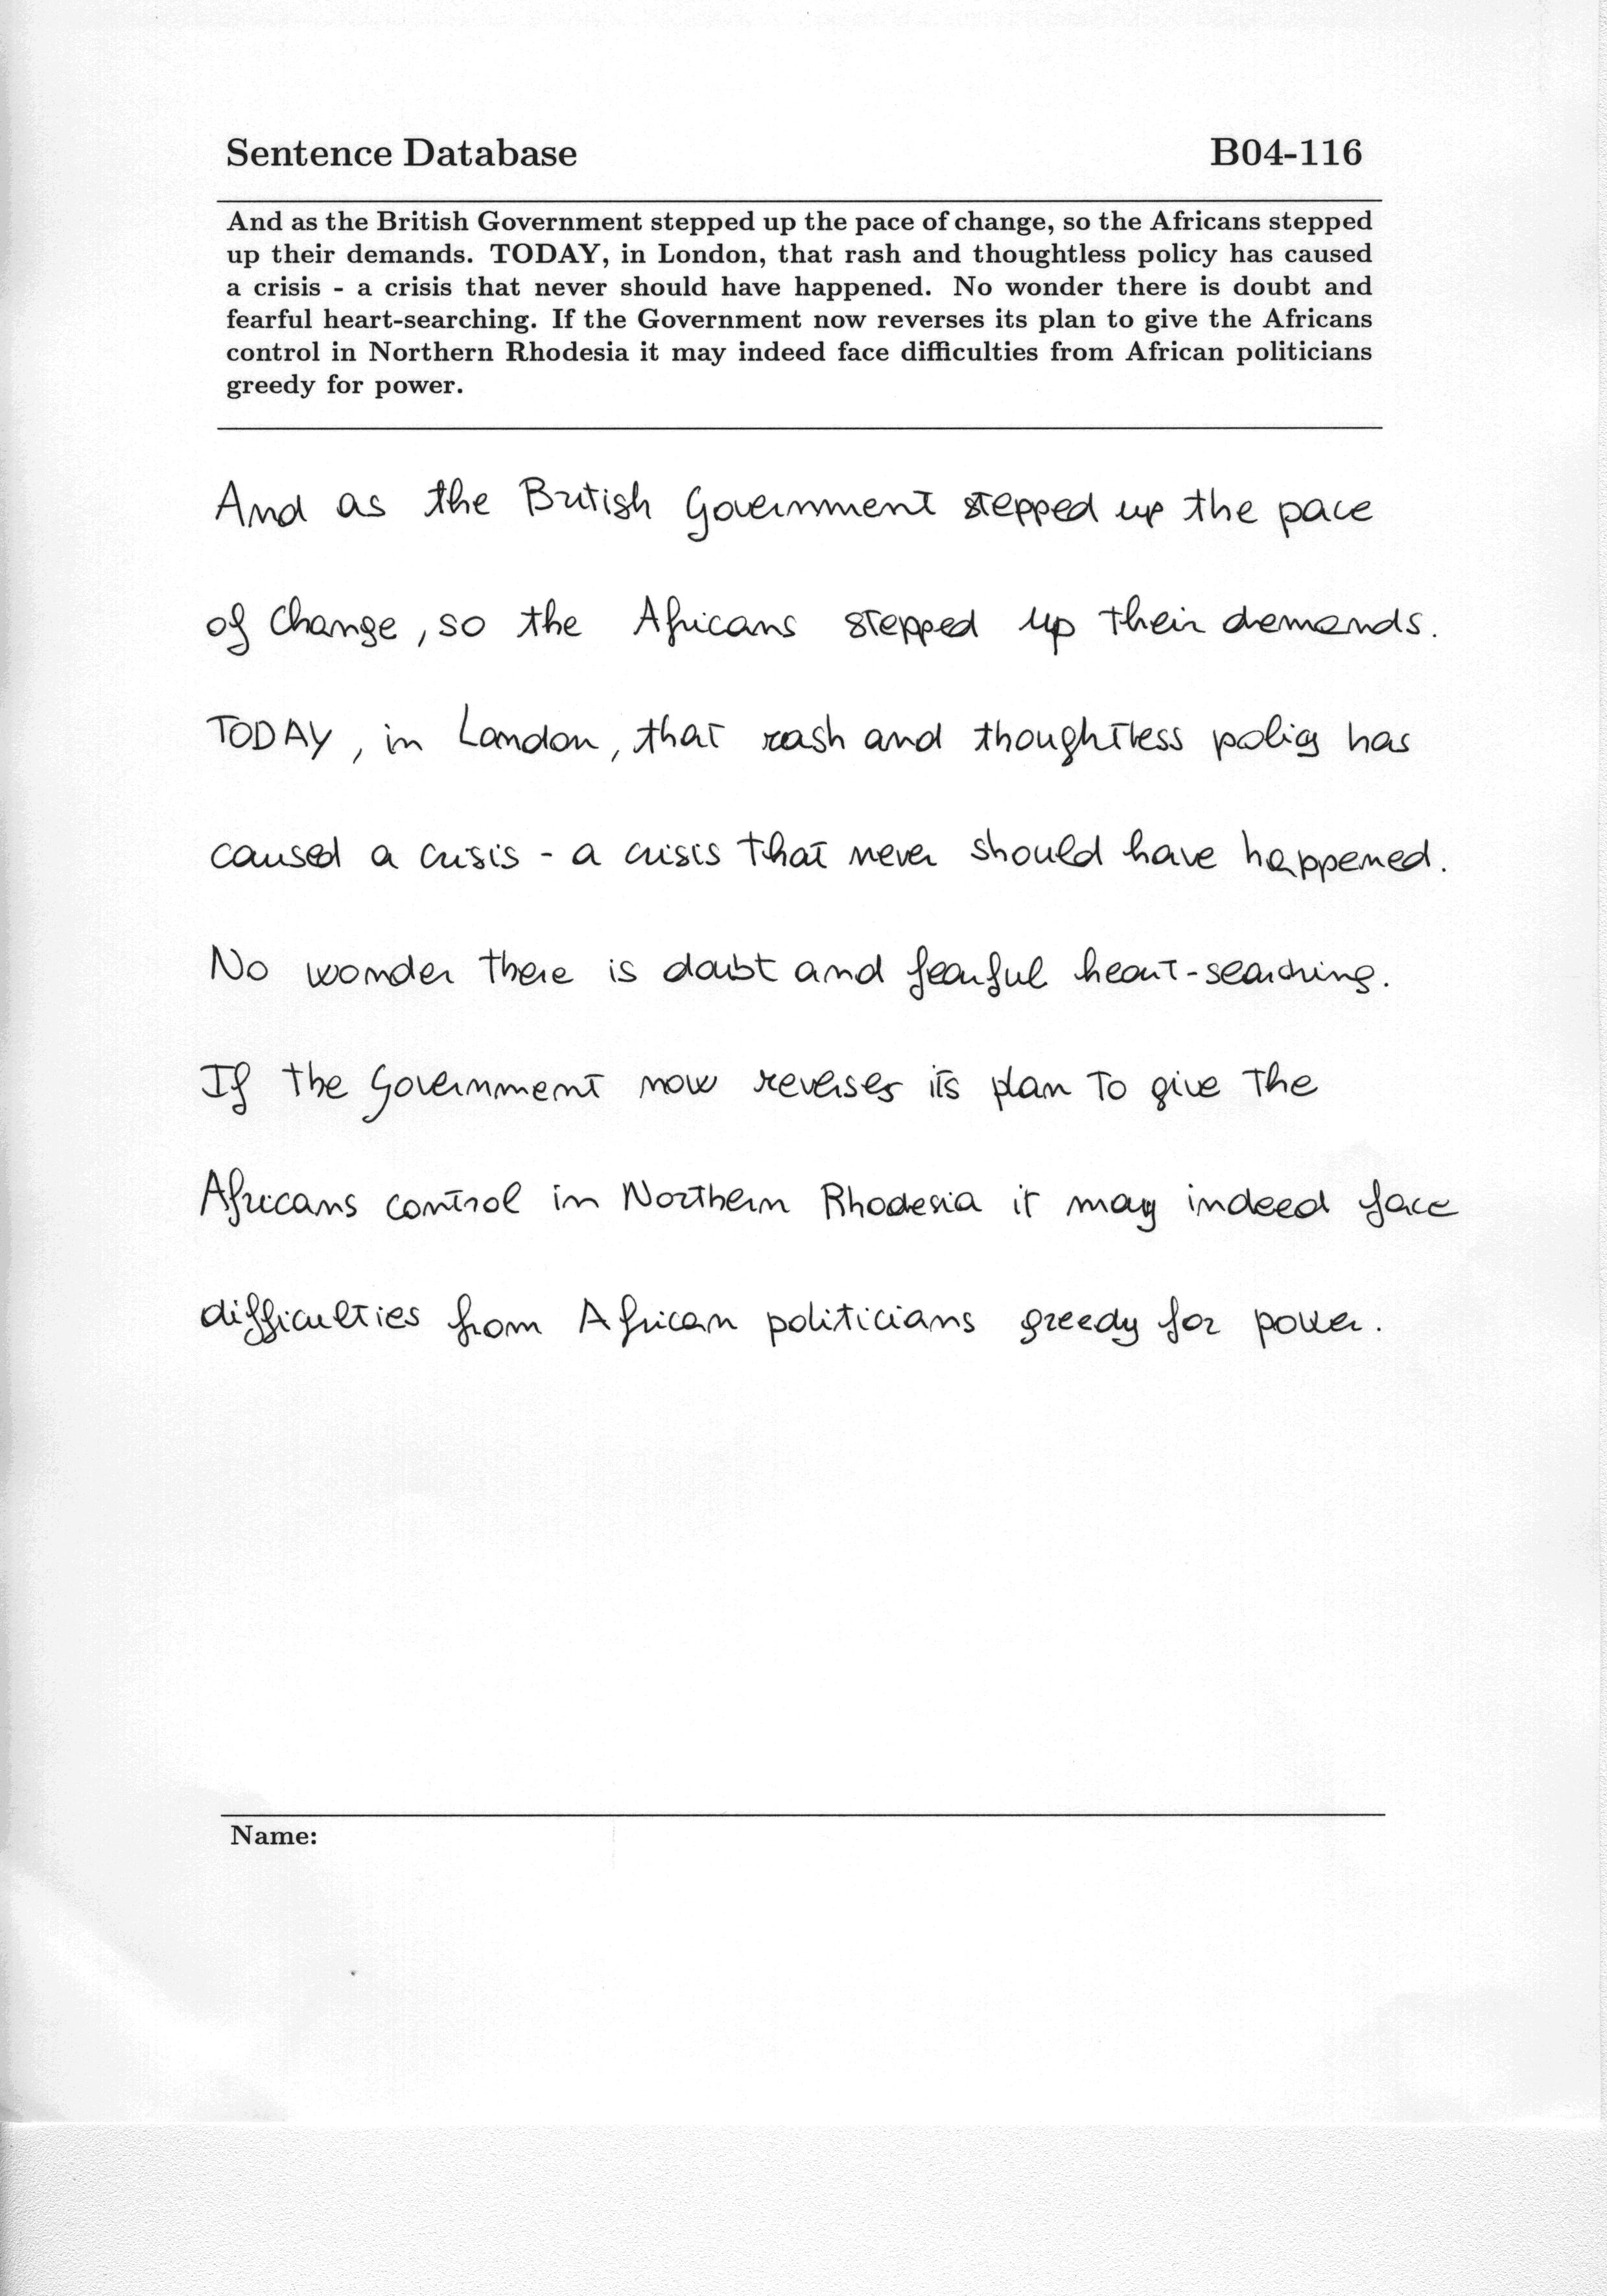 Sentence Database B04-116
And as the British Government stepped up the pace of change, so the Africans stepped
up their demands. TODAY, in London, that rash and thoughtless policy has caused
a crisis - a crisis that never should have happened. No wonder there is doubt and
fearful heart-searching. If the Government now reverses its plan to give the Africans
control in Northern Rhodesia it may indeed face difficulties from African politicians
greedy for power.
And as the British Government stepped up the pace
of change, so the Africans stepped up their demands.
TODAY, in London, that rash and thoughtless policy has
caused a crisis - a crisis that never should have happened.
No wonder there is doubt and fearful heart-searching.
If the Government now reverses its plan to give the
Africans control in Northern Rhodesia it may indeed face
difficulties from African politicians greedy for power.
Name: